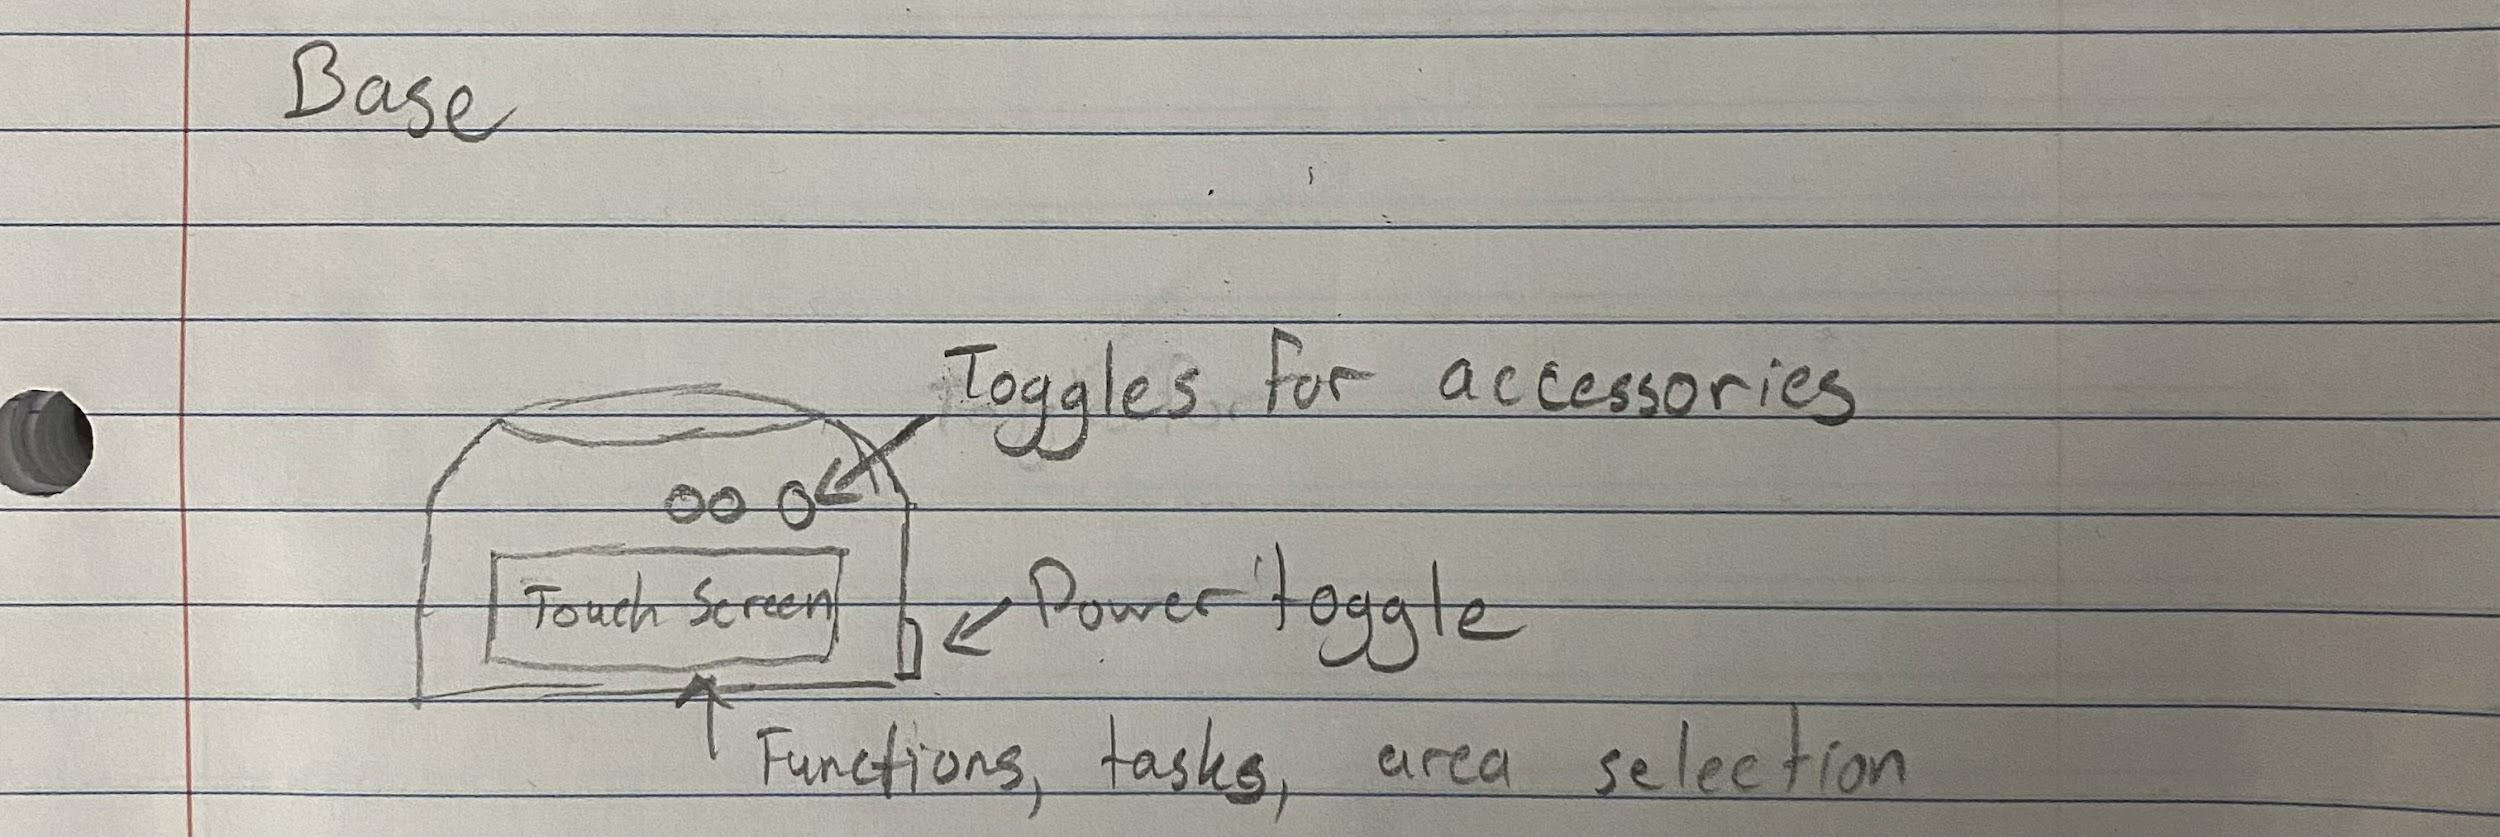 Base
Toggles for accessories
Touch Screen
Power toggle
Functions, tasks, area selection